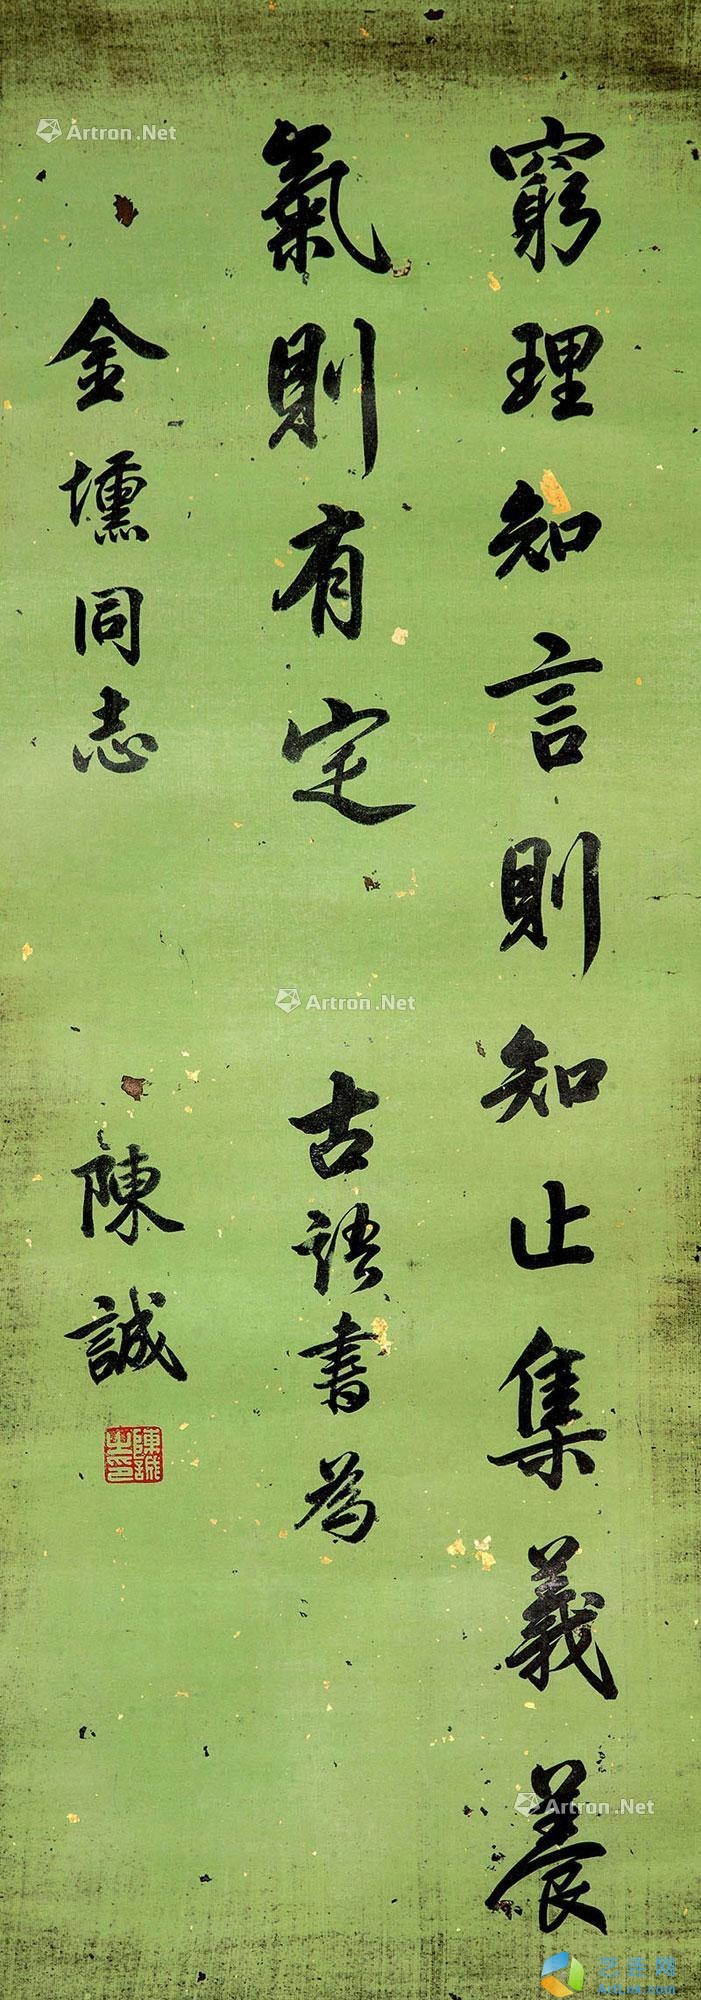 窮理知言則知止集義養
氣則有定
古語書為
金壎同志
陳誠
陳誠之印
Artron.Net
Artron.Net
Artron.Net